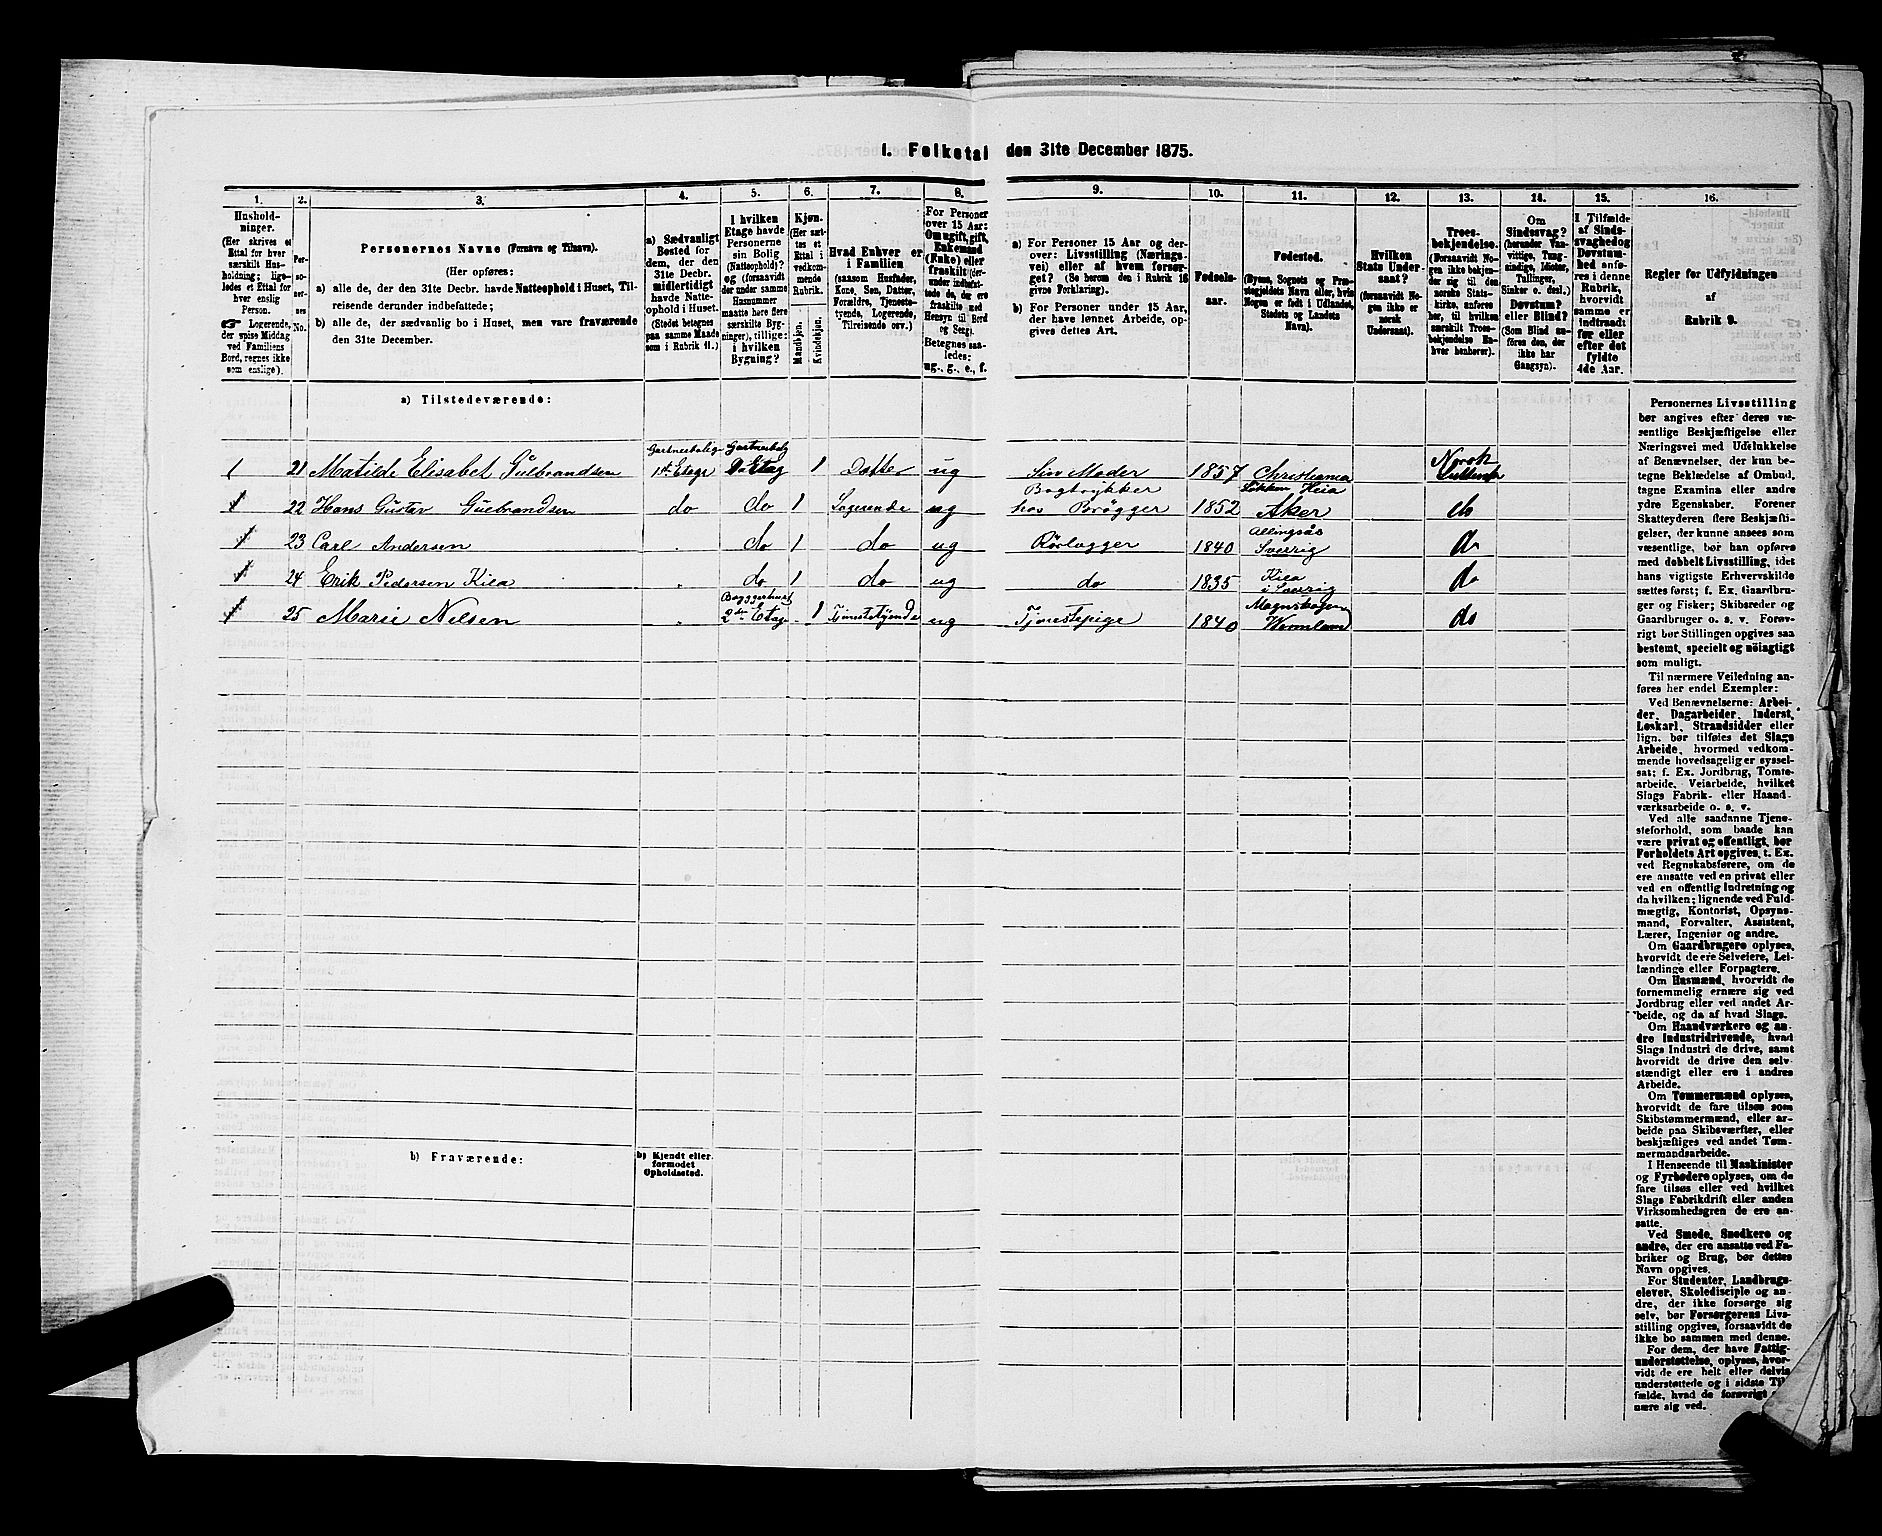 1. Folketal den 31te December 1875.
1. 2. 3. 4. 5. 6. 7. 8. 9. 10. 11. 12. 13. 14. 15. 16.
Hushold-
ninger.
(Her skrives et
Ettal for hver
særskilt Hus-
holdning; lige-
ledes et Ettal for
hver enslig
Person.
☞ Logerende,
der spise Middag
ved Familiens
Bord, regnes ikke
som enslige).
Per-
so-
ner-
nes
No.
Personernes Navne (Fornavn og Tilnavn).
(Her opføres:
a) alle de, der den 31te Decbr. havde Natteophold i Huset, Til-
reisende derunder indbefattede;
b) alle de, der sædvanlig bo i Huset, men vare fraværende
den 31te December.
a) Sædvanligt
Bosted for
dem, der den
31te Decbr.
midlertidigt
havde Natte-
ophold i Huset.
(Stedet betegnes
paa samme Maade
som i Rubrik 11.)
I hvilken
Etage havde
Personerne
sin Bolig
(Natteophold)?
og (forsaavidt
der under samme
Husnummer
maatte høre flere
særskilte Byg-
ninger), tillige:
i hvilken
Bygning?
Kjøn.
(Her sæt-
tes et
Ettal i
vedkom-
mende
Rubrik.
Mandkjøn.
Kvindekjøn.
Hvad Enhver er
i Familien
(saasom Husfader,
Kone, Søn, Datter,
Forældre, Tjeneste-
tyende, Logerende,
Tilreisende osv.)
For Personer
over 15 Aar:
Om ugift, gift,
Enkemand
(Enke) eller
fraskilt (der-
under indbefat-
tede de, der ere
fraskilte med
Hensyn til Bord
og Seng).
Betegnes saa-
ledes:
ug., g., e., f.
a) For Personer 15 Aar og der-
over: Livsstilling (Nærings-
vei) eller af hvem forsør-
get? (Se herom den i Rubrik 16
givne Forklaring).
b) For Personer under 15 Aar,
der have lønnet Arbeide, op-
gives dettes Art.
Fødsels-
aar.
Fødested.
(Byens, Sognets og Præ-
stegjeldets Navn eller, hvis
Nogen er født i Udlandet,
Stedets og Landets
Navn).
Hvilken
Stats Under-
saat?
(forsaavidt No-
gen ikke er
norsk
Undersaat).
Troes-
bekjendelse.
(Forsaavidt No-
gen ikke bekjen-
der sig til den
norske Stats-
kirke, anføres
her, til hvilken
særskilt Troes-
bekjendelse En-
hver henhører).
Om
Sindssvag?
(herunder Van-
vittige, Tung-
sindige, Idioter,
Tullinger,
Sinker o. desl.)
Døvstum?
eller Blind?
(Som Blind an-
føres den, der
ikke har
Gangsyn).
I Tilfælde
af Sinds-
svaghed og
Døvstum-
hed anfø-
res i denne
Rubrik,
hvorvidt
samme er
indtraadt
før eller
efter det
fyldte
4de Aar.
Regler for Udfyldningen
af
Rubrik 9.
a) Tilstedeværende:
1 21 Matilde Elisabet Gulbrandsen Gartnerbolig 1ste Etage Gartnerbolig Etag 1 Datter ug Sin Moder 1857 Christiania Norsk Luthersk
1 22 Hans Gustav Gulbrandsen do do 1 Logerende ug Bogtrykker hos Brøgger 1852 Aker do
1 23 Carl Andersen do 1 do ug Rörlegger 1840 Allingsås Sverrig do
1 24 Erik Pedersen Kila do 1 do ug do 1835 Kila i Sverrig do
1 25 Marie Nilsen 2den Etag 1 Tjenestetyende ug Tjenestepige 1840 Wermland do
b) Fraværende:
b) Kjendt eller
formodet
Opholdssted.
Personernes Livsstilling
bør angives efter deres væ-
sentlige Beskjæftigelse eller
Næringsvei med Udelukkelse
af Benævnelser, der kun be-
tegne Beklædelse af Ombud,
tagne Examina eller andre
ydre Egenskaber. Forener
Skatteyderen flere Beskjæfti-
gelser, der kunne ansees som
væsentlige, bør han opføres
med dobbelt Livsstilling, idet
hans vigtigste Erhvervskilde
sættes først; f. Ex. Gaardbru-
ger og Fisker; Skibsreder og
Gaardbruger o. s. v. Forøv-
rigt bør Stillingen opgives saa
bestemt, specielt og nøiagtigt
som muligt.
Til nærmere Veiledning an-
føres her endel Exempler:
Ved Benævnelserne: Arbei-
der, Dagarbeider, Inderst,
Løskarl, Strandsidder eller
lign. bør tilføies det Slags
Arbeide, hvormed vedkom-
mende hovedsagelig er syssel-
sat; f. Ex. Jordbrug, Tomte-
arbeide, Veiarbeide, hvilket
Slags Fabrik- eller Haand-
værksarbeide o. s. v.
Ved alle saadanne Tjene-
steforhold, som baade kan
være privat og offentligt, bør
Forholdets Art opgives, t. Ex.
ved Regnskabsførere, om de
ere ansatte ved en privat eller
ved en offentlig Indretning og
da hvilken; lignende ved Fuld-
mægtig, Kontorist, Opsyns-
mand, Forvalter, Assistent,
Lærer, Ingeniør og andre.
Om Gaardbrugere oplyses,
hvorvidt de ere Selveiere, Lei-
lændinge eller Forpagtere.
Om Husmænd, hvorvidt de
fornemmelig ernære sig ved
Jordbrug eller ved andet Ar-
beide, og da af hvad Slags.
Om Haandværkere og an-
dre Industridrivende, hvad
Slags Industri de drive, samt
hvorvidt de drive den selv-
stændigt eller ere i andres
Arbeide.
Om Tømmermænd oplyses,
hvorvidt de fare tilsøs som
Skibstømmermænd, eller ar-
beide paa Skibsværfter, eller
beskjæftiges ved andet Tøm-
mermandsarbeide.
I Henseende til Maskinister
og Fyrbødere oplyses, om de
fare tilsøs eller ved hvilket
Slags Fabrikdrift eller anden
Virksomhedsgren de ere an-
satte.
Ved Smede, Snedkere og
andre, der ere ansatte ved Fa-
briker og Brug, bør dettes
Navn opgives.
For Studenter, Landbrugs-
elever, Skoledisciple og an-
dre, der ikke forsørge sig
selv, bør Forsørgerens Livs-
stilling opgives, forsaavidt de
ikke bo sammen med denne.
For dem, der have Fattig-
understøttelse, oplyses, hvor-
vidt de ere helt eller delvis
understøttede og i sidste Til-
fælde, hvad de forøvrigt
nære sig ved.